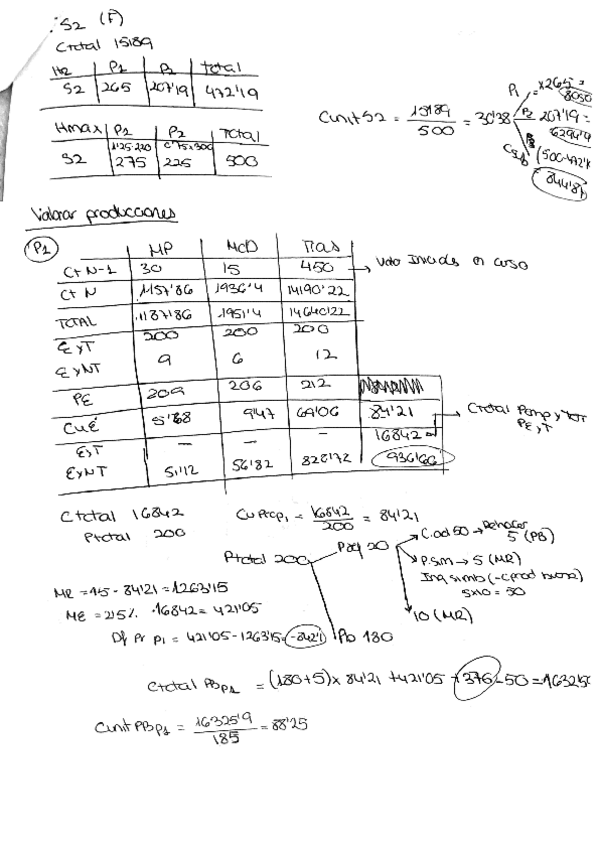 S2 (F)
Ctotal 15189
Hr | P1 | P2 | total
S2 | 265 | 207'19 | 472'19
Hmax | P1 | P2 | Total
1'25·220 | 0'75×300
S2 | 275 | 225 | 500
Cunit S2 = 15189 / 500 = 30'38
P1 = ×265 =
8050
P2 207'19 =
6294'9
Csub (500-472'1
844'8
Valorar producciones
P1
MP | MCD | Tras
Ct N-1 | 30 | 15 | 450 → Valo Inicials en curso
Ct N | 1157'86 | 1936'4 | 14190'22
TOTAL | 1187'86 | 1951'4 | 14640'22
EyT | 200 | 200 | 200
EyNT | 9 | 6 | 12
PE | 209 | 206 | 212
CUE | 5'68 | 9'47 | 69'06 | 84'21
EyT | - | - | - | 16842 → Ctotal Pemp y Ter PE y T
EyNT | 51'12 | 56'82 | 828'72 | 936'66
Ctotal 16842
Ptotal 200
CuPtcp1 = 16842 / 200 = 84'21
Ptotal 200
Pdef 20
C.od 50 → Rehacer
5 (PB)
P.sim → 5 (MR)
Ing simb (-cprod buena)
5×10 = 50
10 (MR)
Pb 180
MR = 15·84'21 = 1263'15
ME = 2'5% · 16842 = 421'05
Df Pr P1 = 421'05 - 1263'15 = -842'1
Ctotal PBP1 = (180+5) × 84'21 + 421'05 + 376 - 50 = 16325'
Cunit PBP1 = 16325'9 / 185 = 88'25